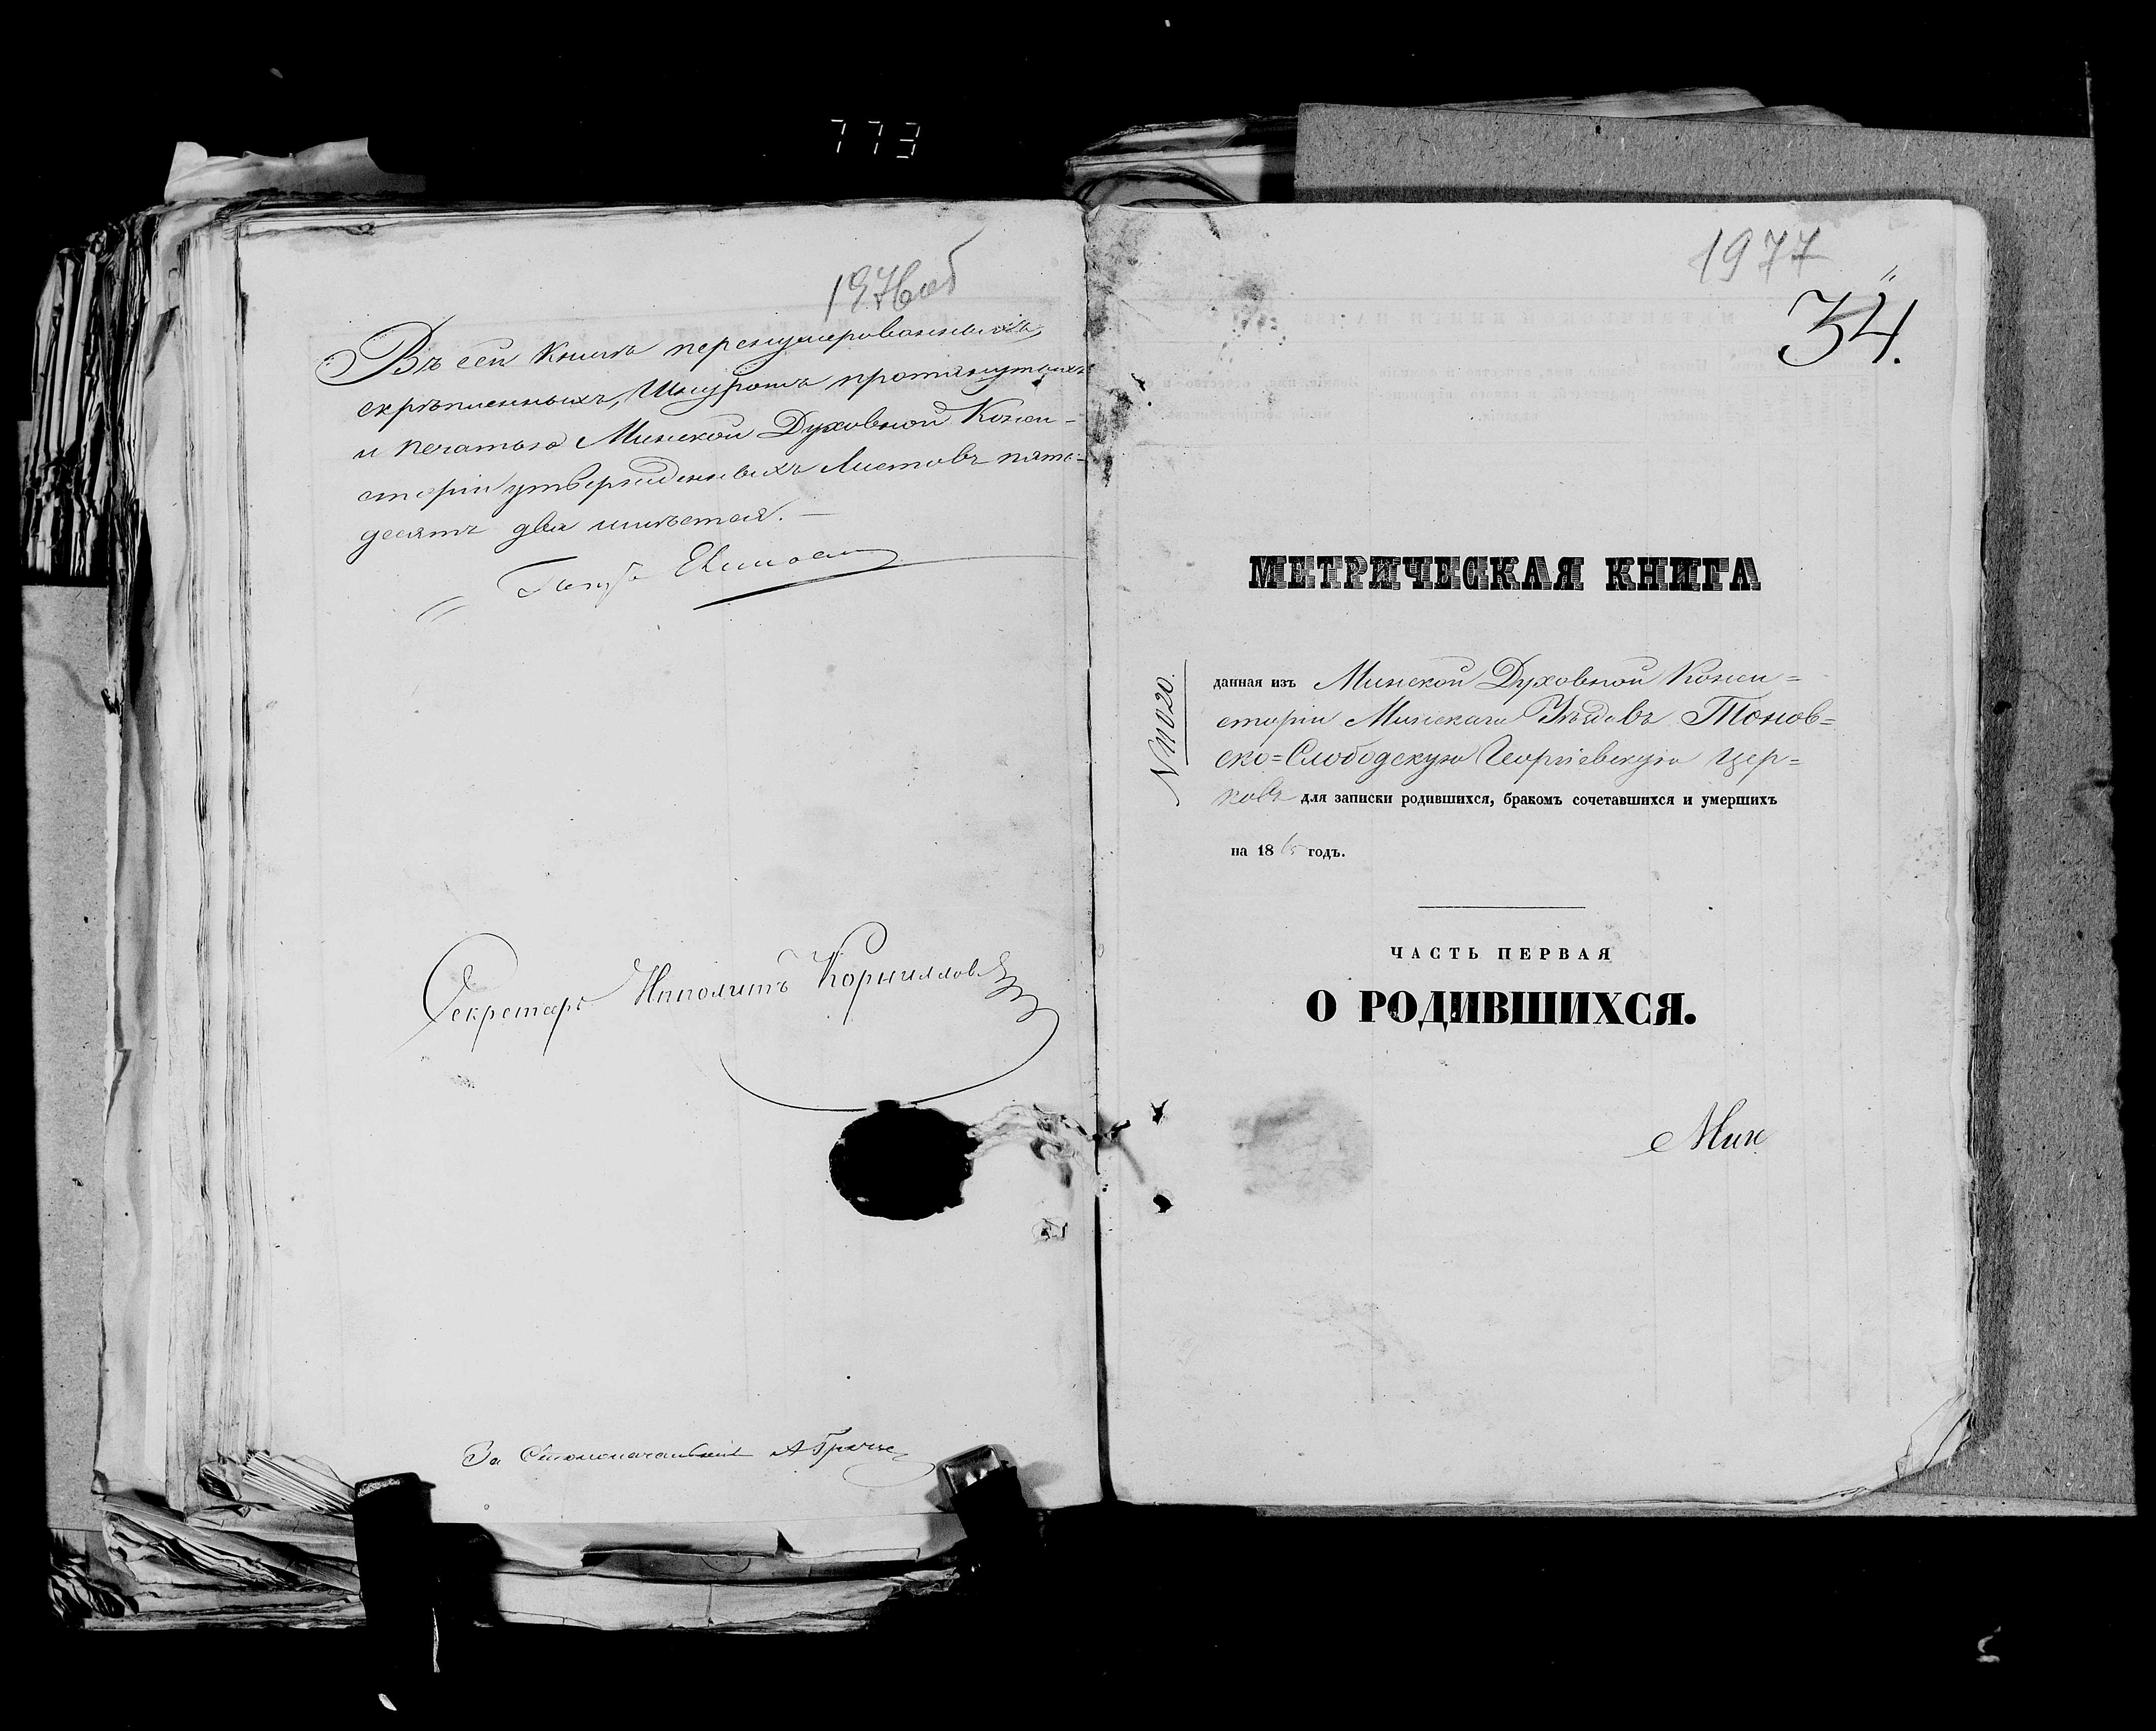 773
1976об
Въ сей Книгѣ перенумерованныхъ,
скрѣпленныхъ, Шнуромъ протянутыхъ
и печатью Минской Духовной Конси-
сторіи утвержденныхъ Листовъ пять-
десятъ два
Секретарь Ипполитъ Корниллов
За Столоначальника
1977
34.
МЕТРИЧЕСКАЯ КНИГА
N 11020.
данная изъ Минской Духовной Конси=
сторіи Минскаго Уѣзда въ Тонов=
ско=Слободскую Георгіевскую цер=
ковь для записки родившихся, бракомъ сочетавшихся и умершихъ
на 1865 годъ.
ЧАСТЬ ПЕРВАЯ
О РОДИВШИХСЯ.
Мин